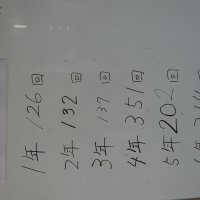 1年 126回
2年 132回
3年 137回
4年 351回
5年 202回